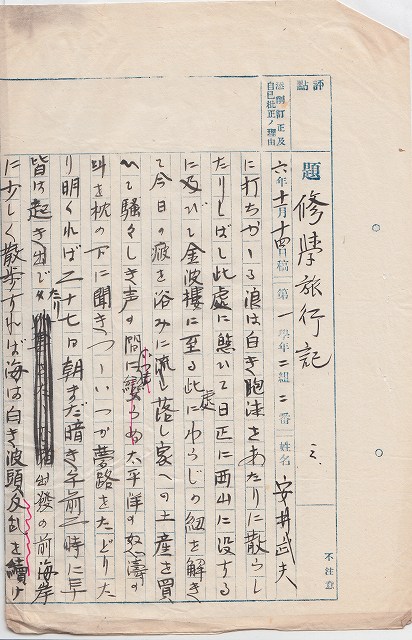 評點
添削訂正及
自己批正ノ理由
題 修學旅行記 三、
六年十月十四日稿 第一學年二組二番 姓名 安井武夫
不注意
に打ちかゝる浪は白き胞沫をあたりに散らし
たりしばし此處に憩いて日正に西山に没する
に及びて金波樓に至る此處にわらじの紐を解き
て今日の疲を浴みに流し落し家への土産を買
いて騒々しき声の間に變らぬ太平洋の怒濤の
叫を枕の下に聞きつゝいつか夢路をたどりた
り明くれば二十七日朝まだ暗き午前二時に早
皆は起き出でたり 出發の前海岸
に少しく散歩すれば海は白き波頭 を續け